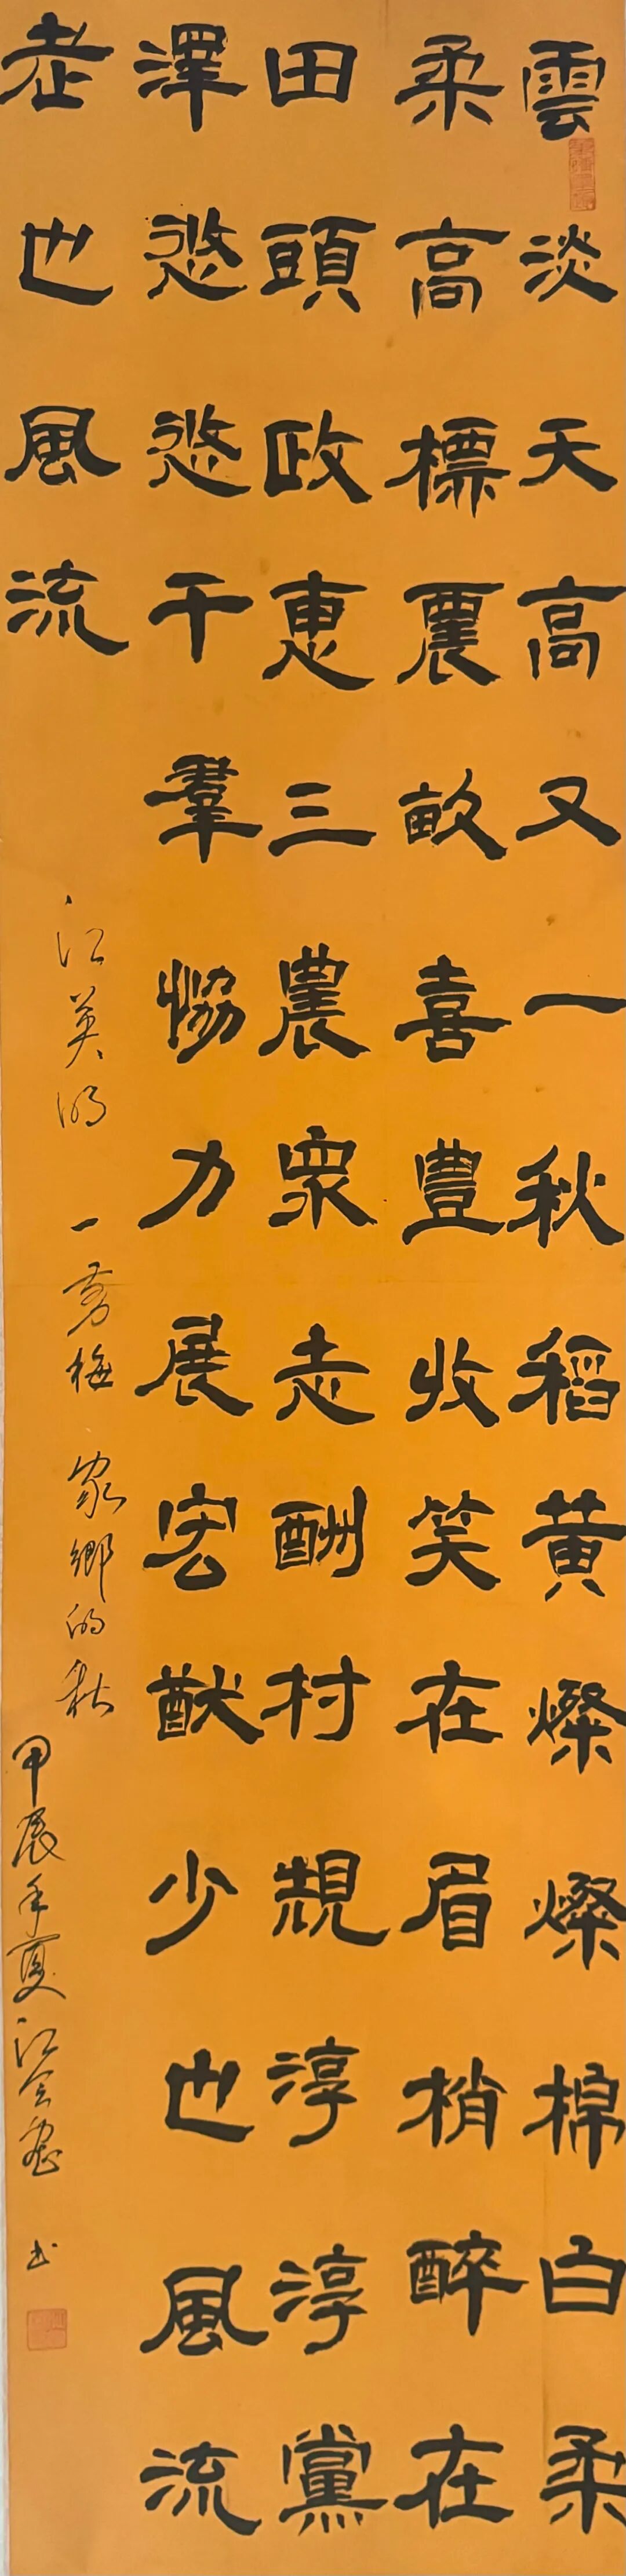 雲淡天高又一秋稻黄燦燦棉白柔
柔高標農畝喜豐收笑在眉梢醉在
田頭政惠三農衆志酬村規淳淳黨
澤悠悠干羣恊力展宏猷少也風流
老也風流
江英的 一剪梅 家鄉的秋
甲辰年夏江書